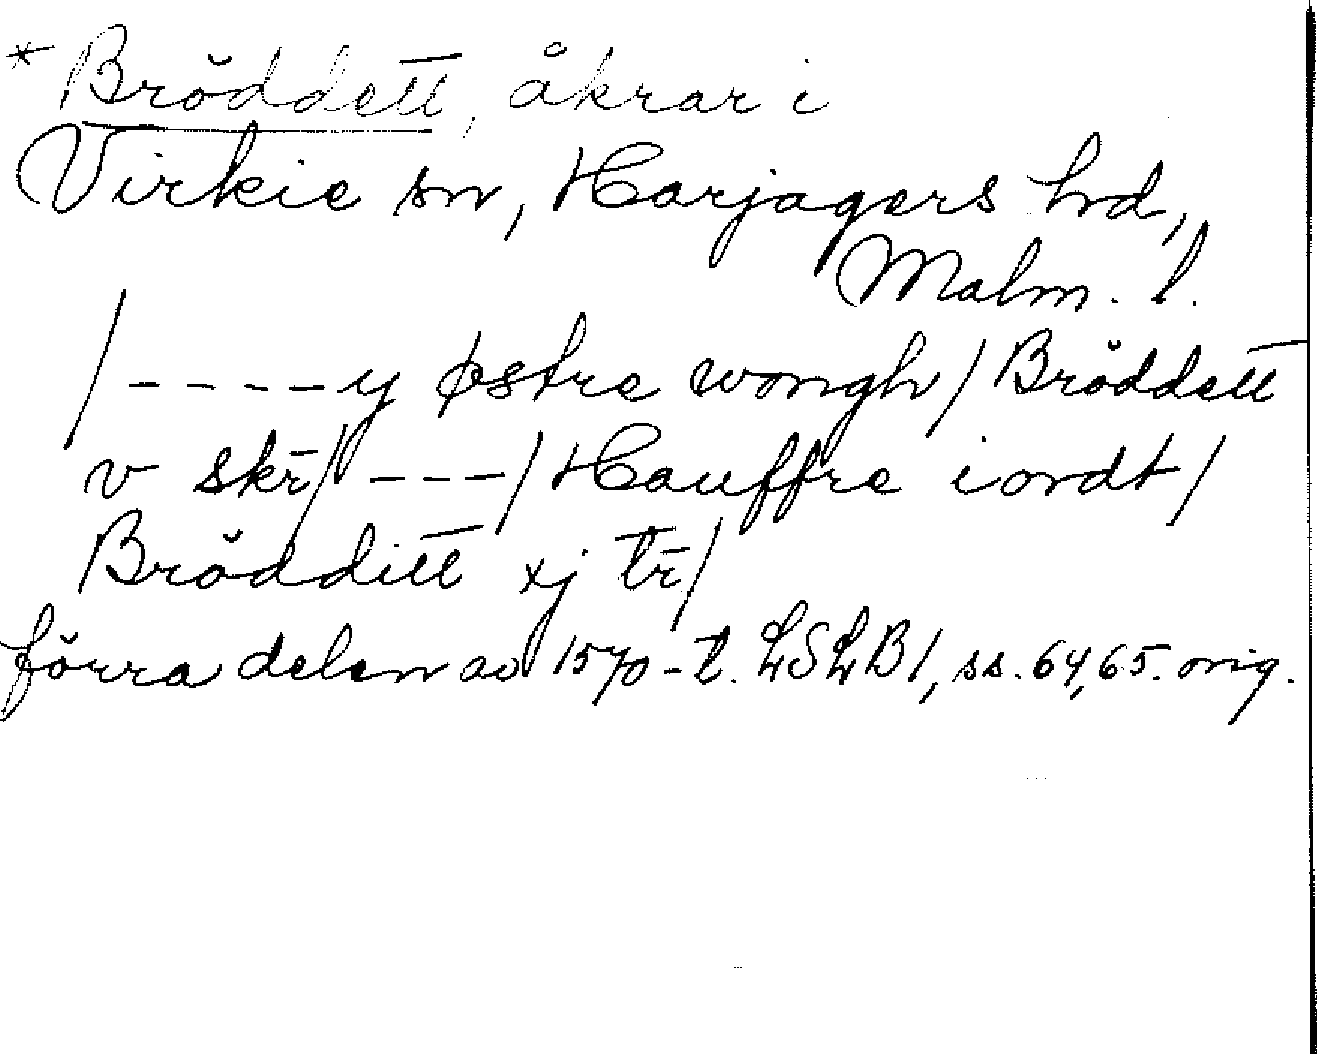 *Bröddett, åkrar i
Virkie sn, Harjagers hd,
Malm. l.
/-----y østre wongh/Bröddett
v skr̄/---/Hauffre iordt/
Brödditt xj tr̄/
förra delen av 1570-t. LSLB1, ss. 64,65. orig.